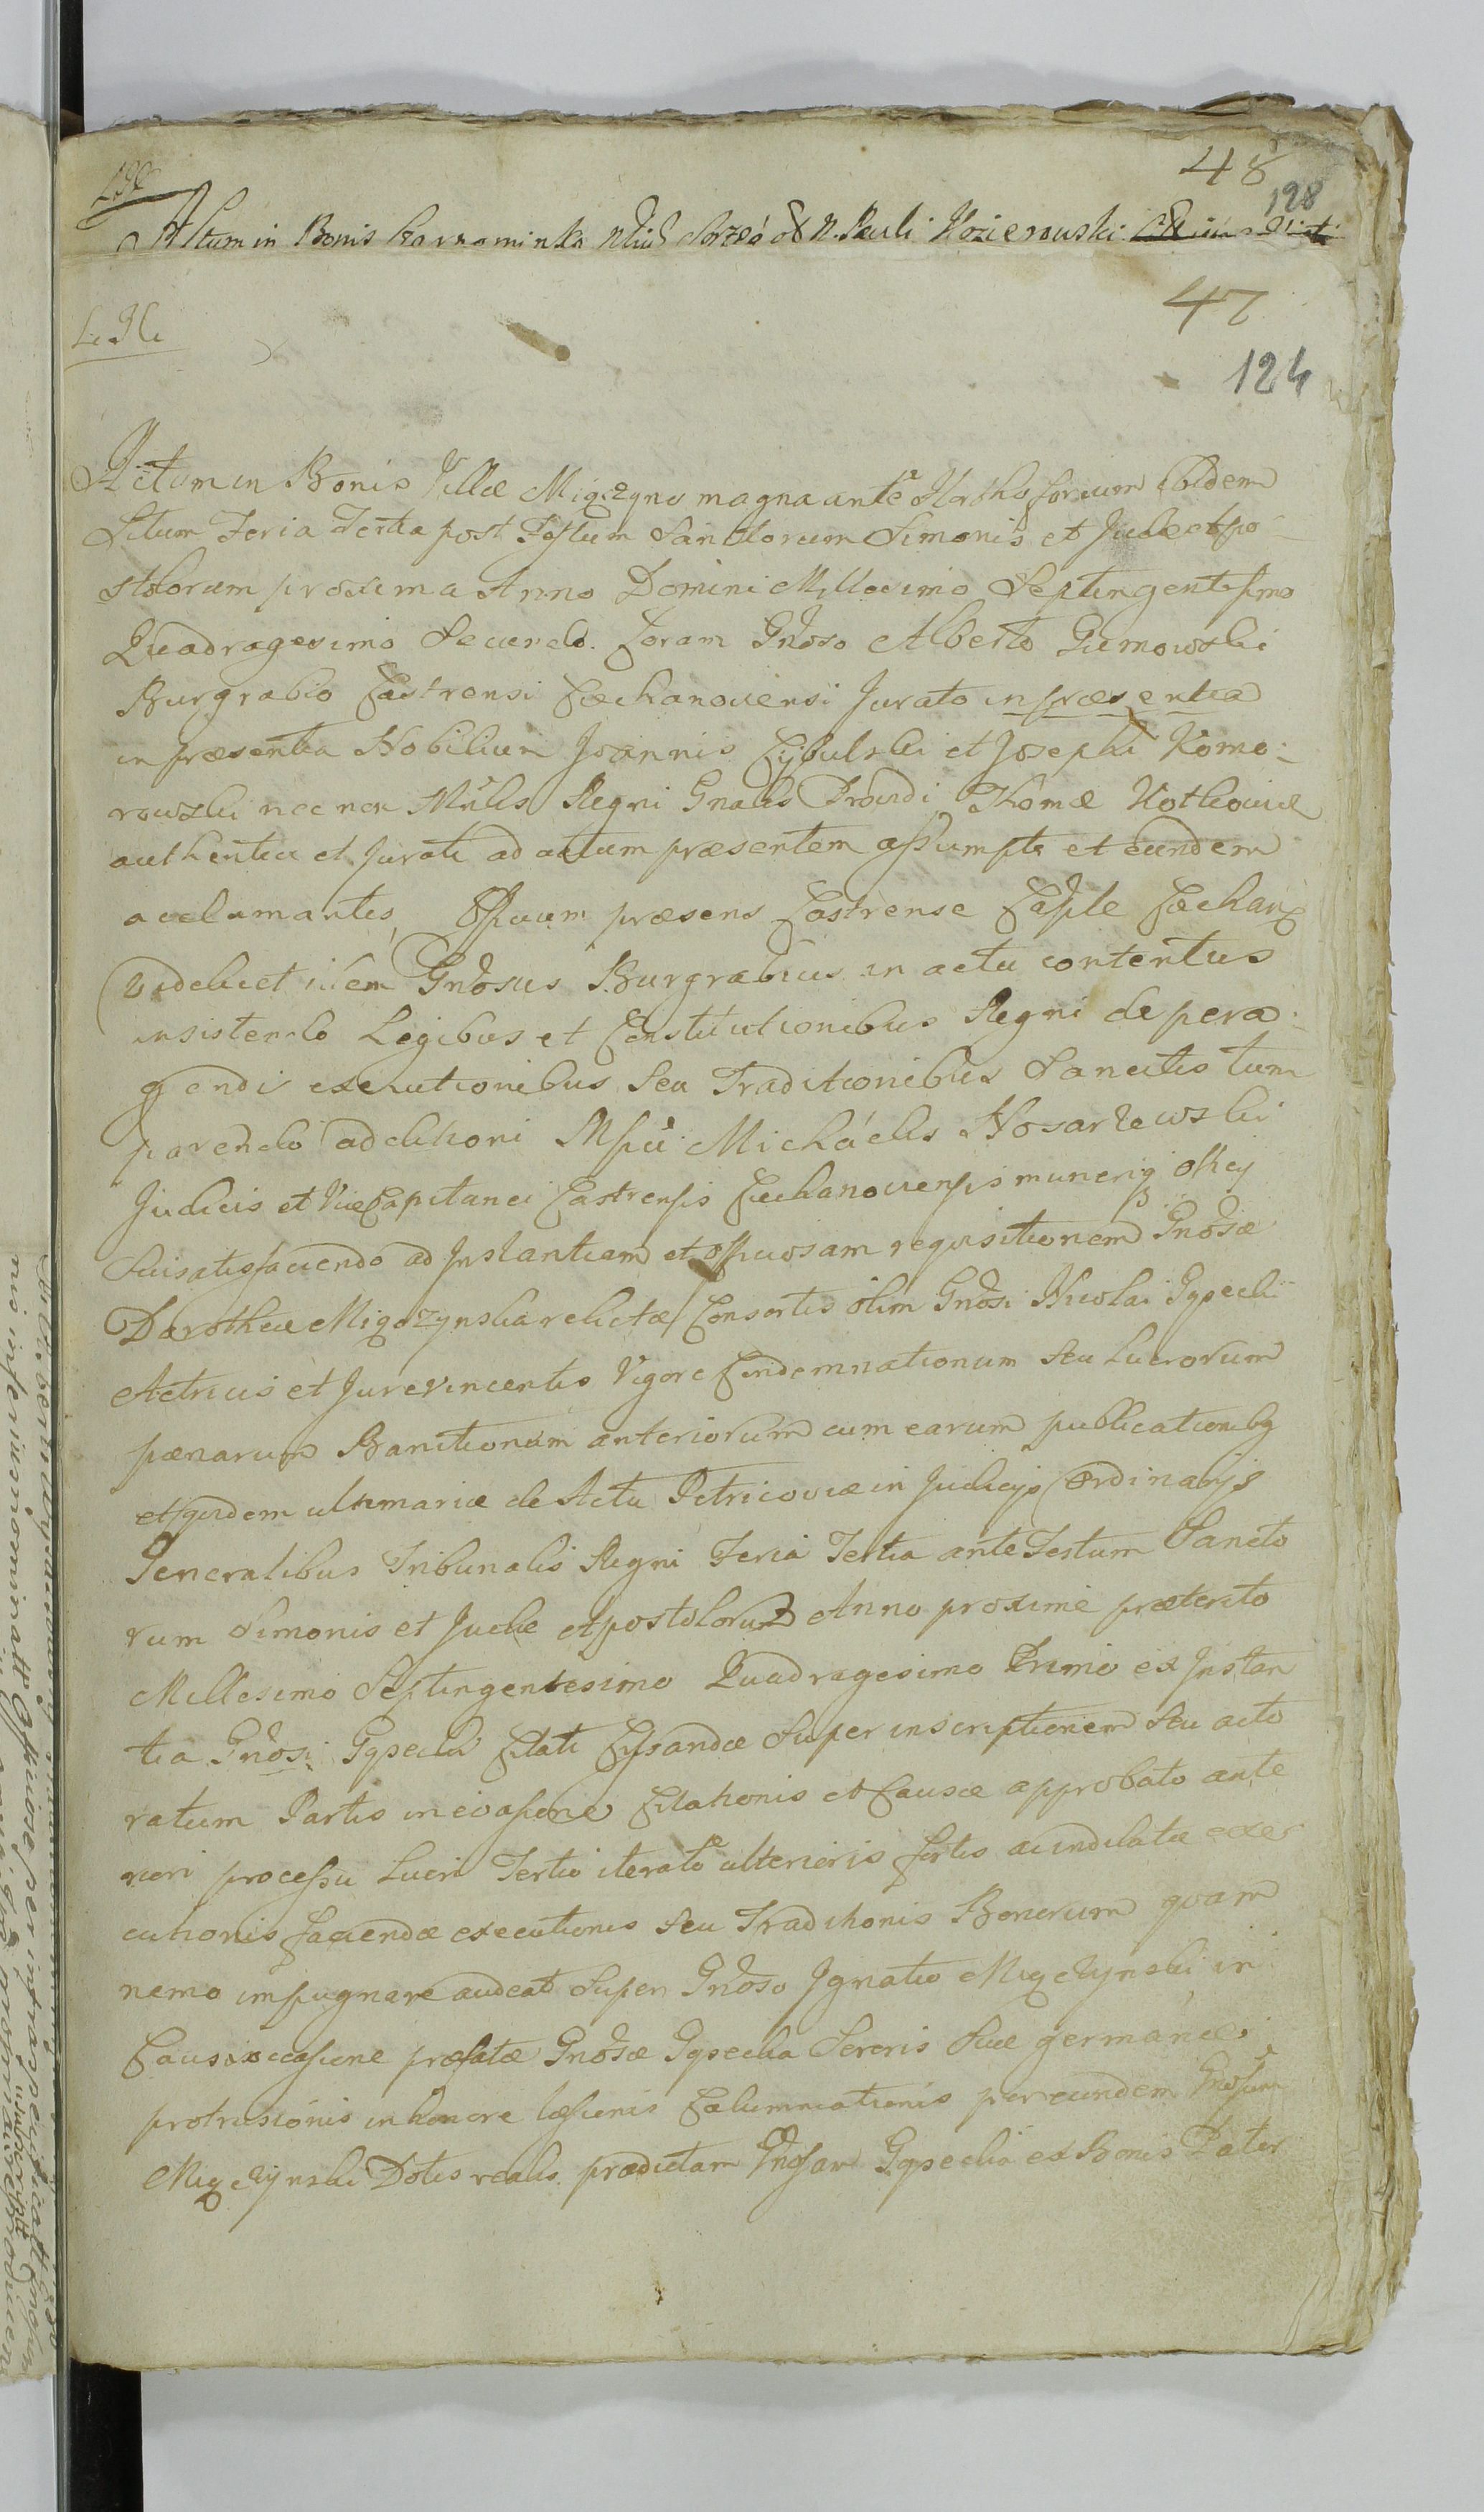 48
128
Actum in Bonis N. Pauli Kozierowski
47
124
Actum in Bonis Villæ Migozyno magna ante forium ibidem
Situm Feria Tertia post Festum Sanctorum Simonis et Judæ Apo-
stolorum proxima Anno Domini Millesimo Septingentesimo
Quadragesimo Secundo. Coram Gnoso Alberto Gumowski
Burgrabio Castrensi Ciechanoviensi Jurato in præsentia
in præsentia Nobilium Joannis Cijbulski et Josephi Komo-
rowski nec non Mnlis Regni Gnalis Provdi Thomæ Kotkowicz
authentici et Jurati ad actum præsentem assumpti et eundem
acclamantis, Offium præsens Castrense Caple Ciechan
videlicet idem Gnosus Burgrabius in actu contentus
insistendo Legibus et Constitutionibus Regni de pera-
gendi executionibus Seu Traditionibus Sancitis tum
parendo additioni Mfci Michaelis Nosarzewski
Judicis et ViceCapitanei Castrensis Ciechanoviensis munerisq officij
Sui satisfaciendo ad Instantiam et officiosam requisitionem Gnosæ
Dorotheæ Migozynska relictæ Consortis olim Gnosi Nicolai Gpecki
Actricis et Jurevincentis Vigore Condemnationum Seu Lucrorum
pænarum Banitionum anteriorum cum earum publicationibq
et quidem ultimariæ de Actu Petricoviæ in Judicijs Ordinarijs
Generalibus Tribunalis Regni Feria Tertia ante Festum Sancto
rum Simonis et Judæ Apostolorum Anno proxime præterito
Millesimo Septingentesimo Quadragesimo Primo ex Instan
tia Gnosi Citati Super inscriptionem Seu acto
ratum Partis in evasione Citationis et Causæ approbato ante
riori processu Lucri Tertio iterato ulterioris fortis ac indilatæ exe
cutionis faciendæ executionis Seu Traditionis Bonorum quam
nemo impugnare audeat Super Gnoso Ignatio Migozynski in
Causa occasione præfatæ Gnosæ Sororis Suæ germanæ
protrusionis in honore læsionis Calumniationis per eundem Gnosum
Migozynski Dotis realis prædictam Gnosam ex Bonis Pater